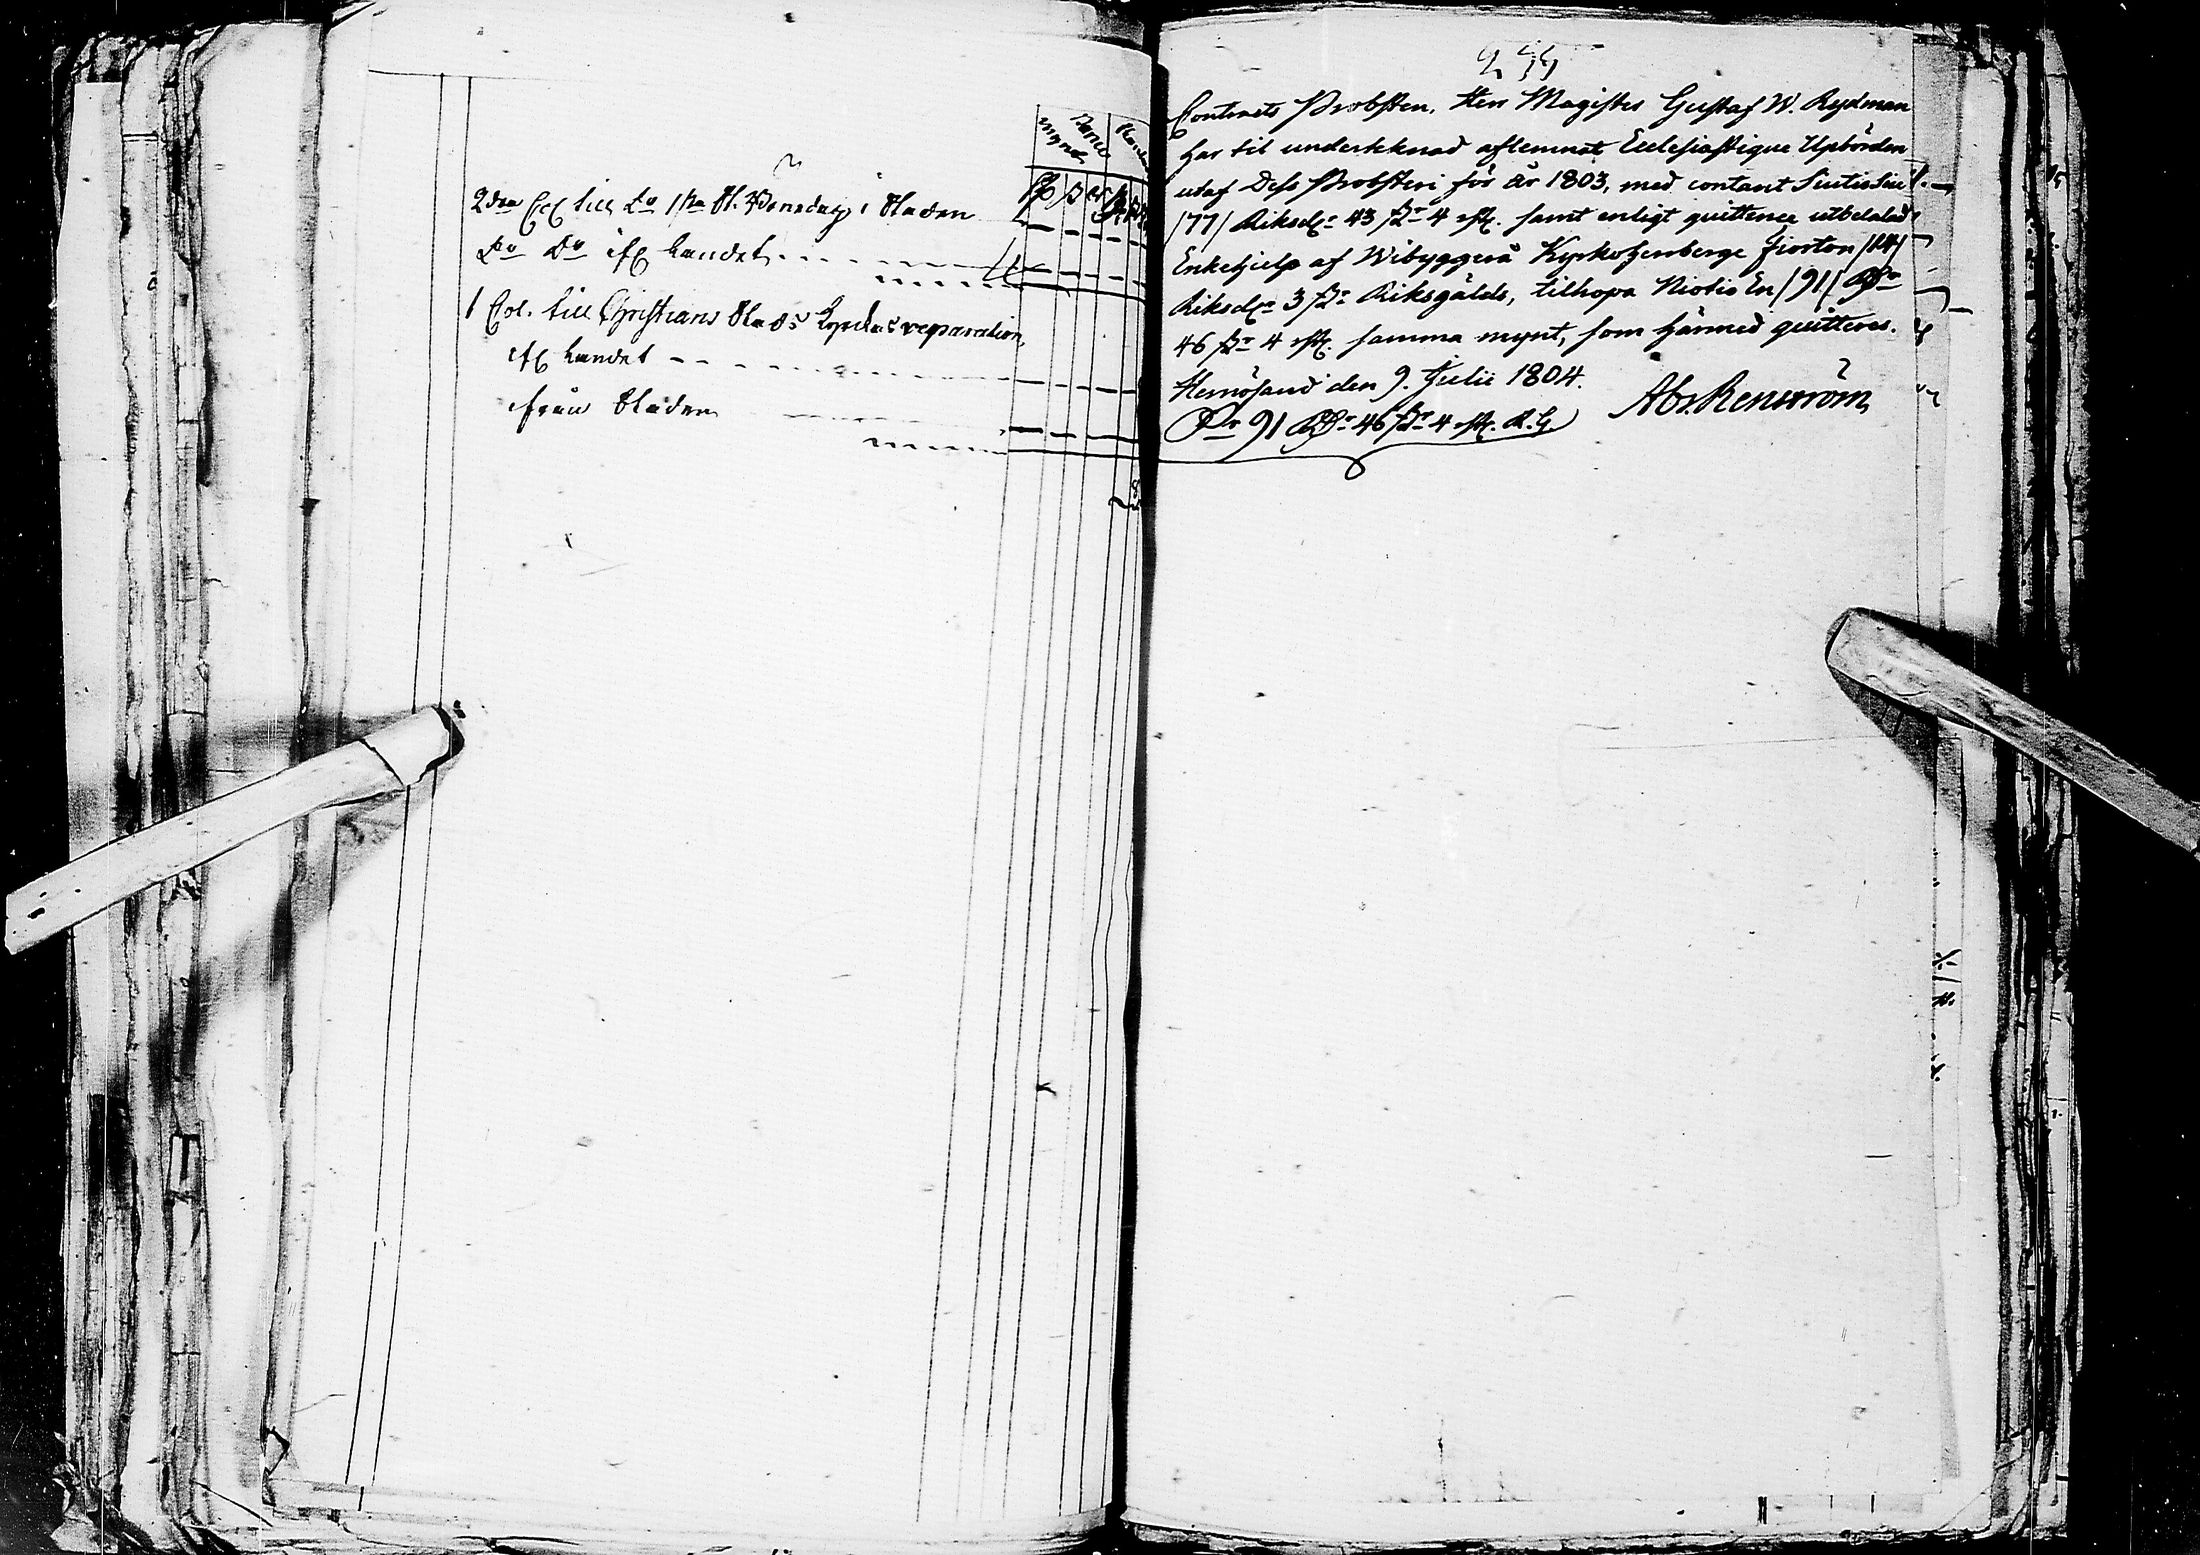 2dra Coll. till do 1sta St. Bönedag i Staden
Do Do ifr. Landet
1 Col. till Christians Stads Kyrckas reparation,
ifr. Landet
från Staden
Banco
244
Contracts Probsten, Herr Magister Gustaf W. Rydman
har til undertecknad aflemnat Ecclesiastique Upbörden
utaf Dess Probsteri för år 1803, med contant Siutiosiu
/77/ Riksdr 43 sk. 4 rst. samt enligt quittence utbetalad
Enkehjelp af Wibyggerå Kyrkoherberge fiorton /14/
Riksdr 3 sk. Riksgälds, tilhopa Niotio En /91/ Rdr
46 sk. 4 rst. samma mynt, som härmed quitteres.
Hernösand den 9. Julii 1804.
Abr. Renström
91 Rdr 46 sk. 4 rst. R.G